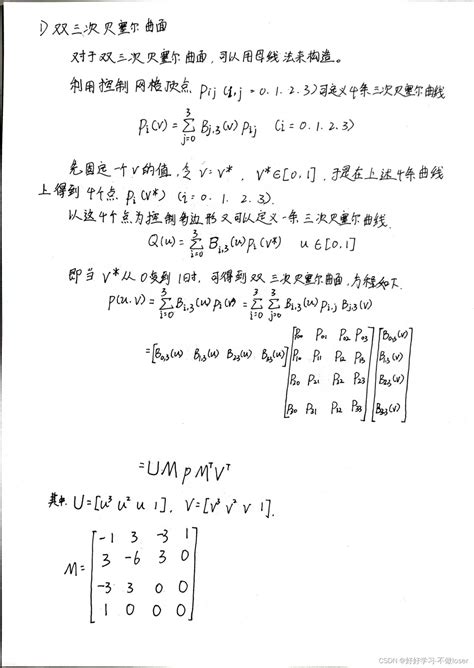 1) 双三次贝塞尔曲面
对于双三次贝塞尔曲面,可以用母线法来构造。
利用控制网格顶点 Pij (i,j = 0.1.2.3)可定义4条三次贝塞尔曲线
Pi(v) = Σ_{j=0}^{3} Bj,3(v) Pij (i = 0.1.2.3)
先固定一个v的值,令 v = v*, v* ∈ [0,1], 于是在上述4条曲线
上得到4个点 Pi(v*) (i = 0.1.2.3).
以这4个点为控制多边形又可以定义一条三次贝塞尔曲线
Q(u) = Σ_{i=0}^{3} Bi,3(u) Pi(v*) u ∈ [0,1]
即当 v* 从0变到1时,可得到双三次贝塞尔曲面,方程如下.
P(u,v) = Σ_{i=0}^{3} Bi,3(u) Pi(v) = Σ_{i=0}^{3} Σ_{j=0}^{3} Bi,3(u) Pi,j Bj,3(v)
= [B0,3(u) B1,3(u) B2,3(u) B3,3(u)] [P00 P01 P02 P03] [B0,3(v)]
[P10 P11 P12 P13] [B1,3(v)]
[P20 P21 P22 P23] [B2,3(v)]
[P30 P31 P32 P33] [B3,3(v)]
= U M P M^T V^T
其中. U = [u³ u² u 1], V = [v³ v² v 1].
M = [-1 3 -3 1]
[3 -6 3 0]
[-3 3 0 0]
[1 0 0 0]
CSDN @好好学习·不做loser